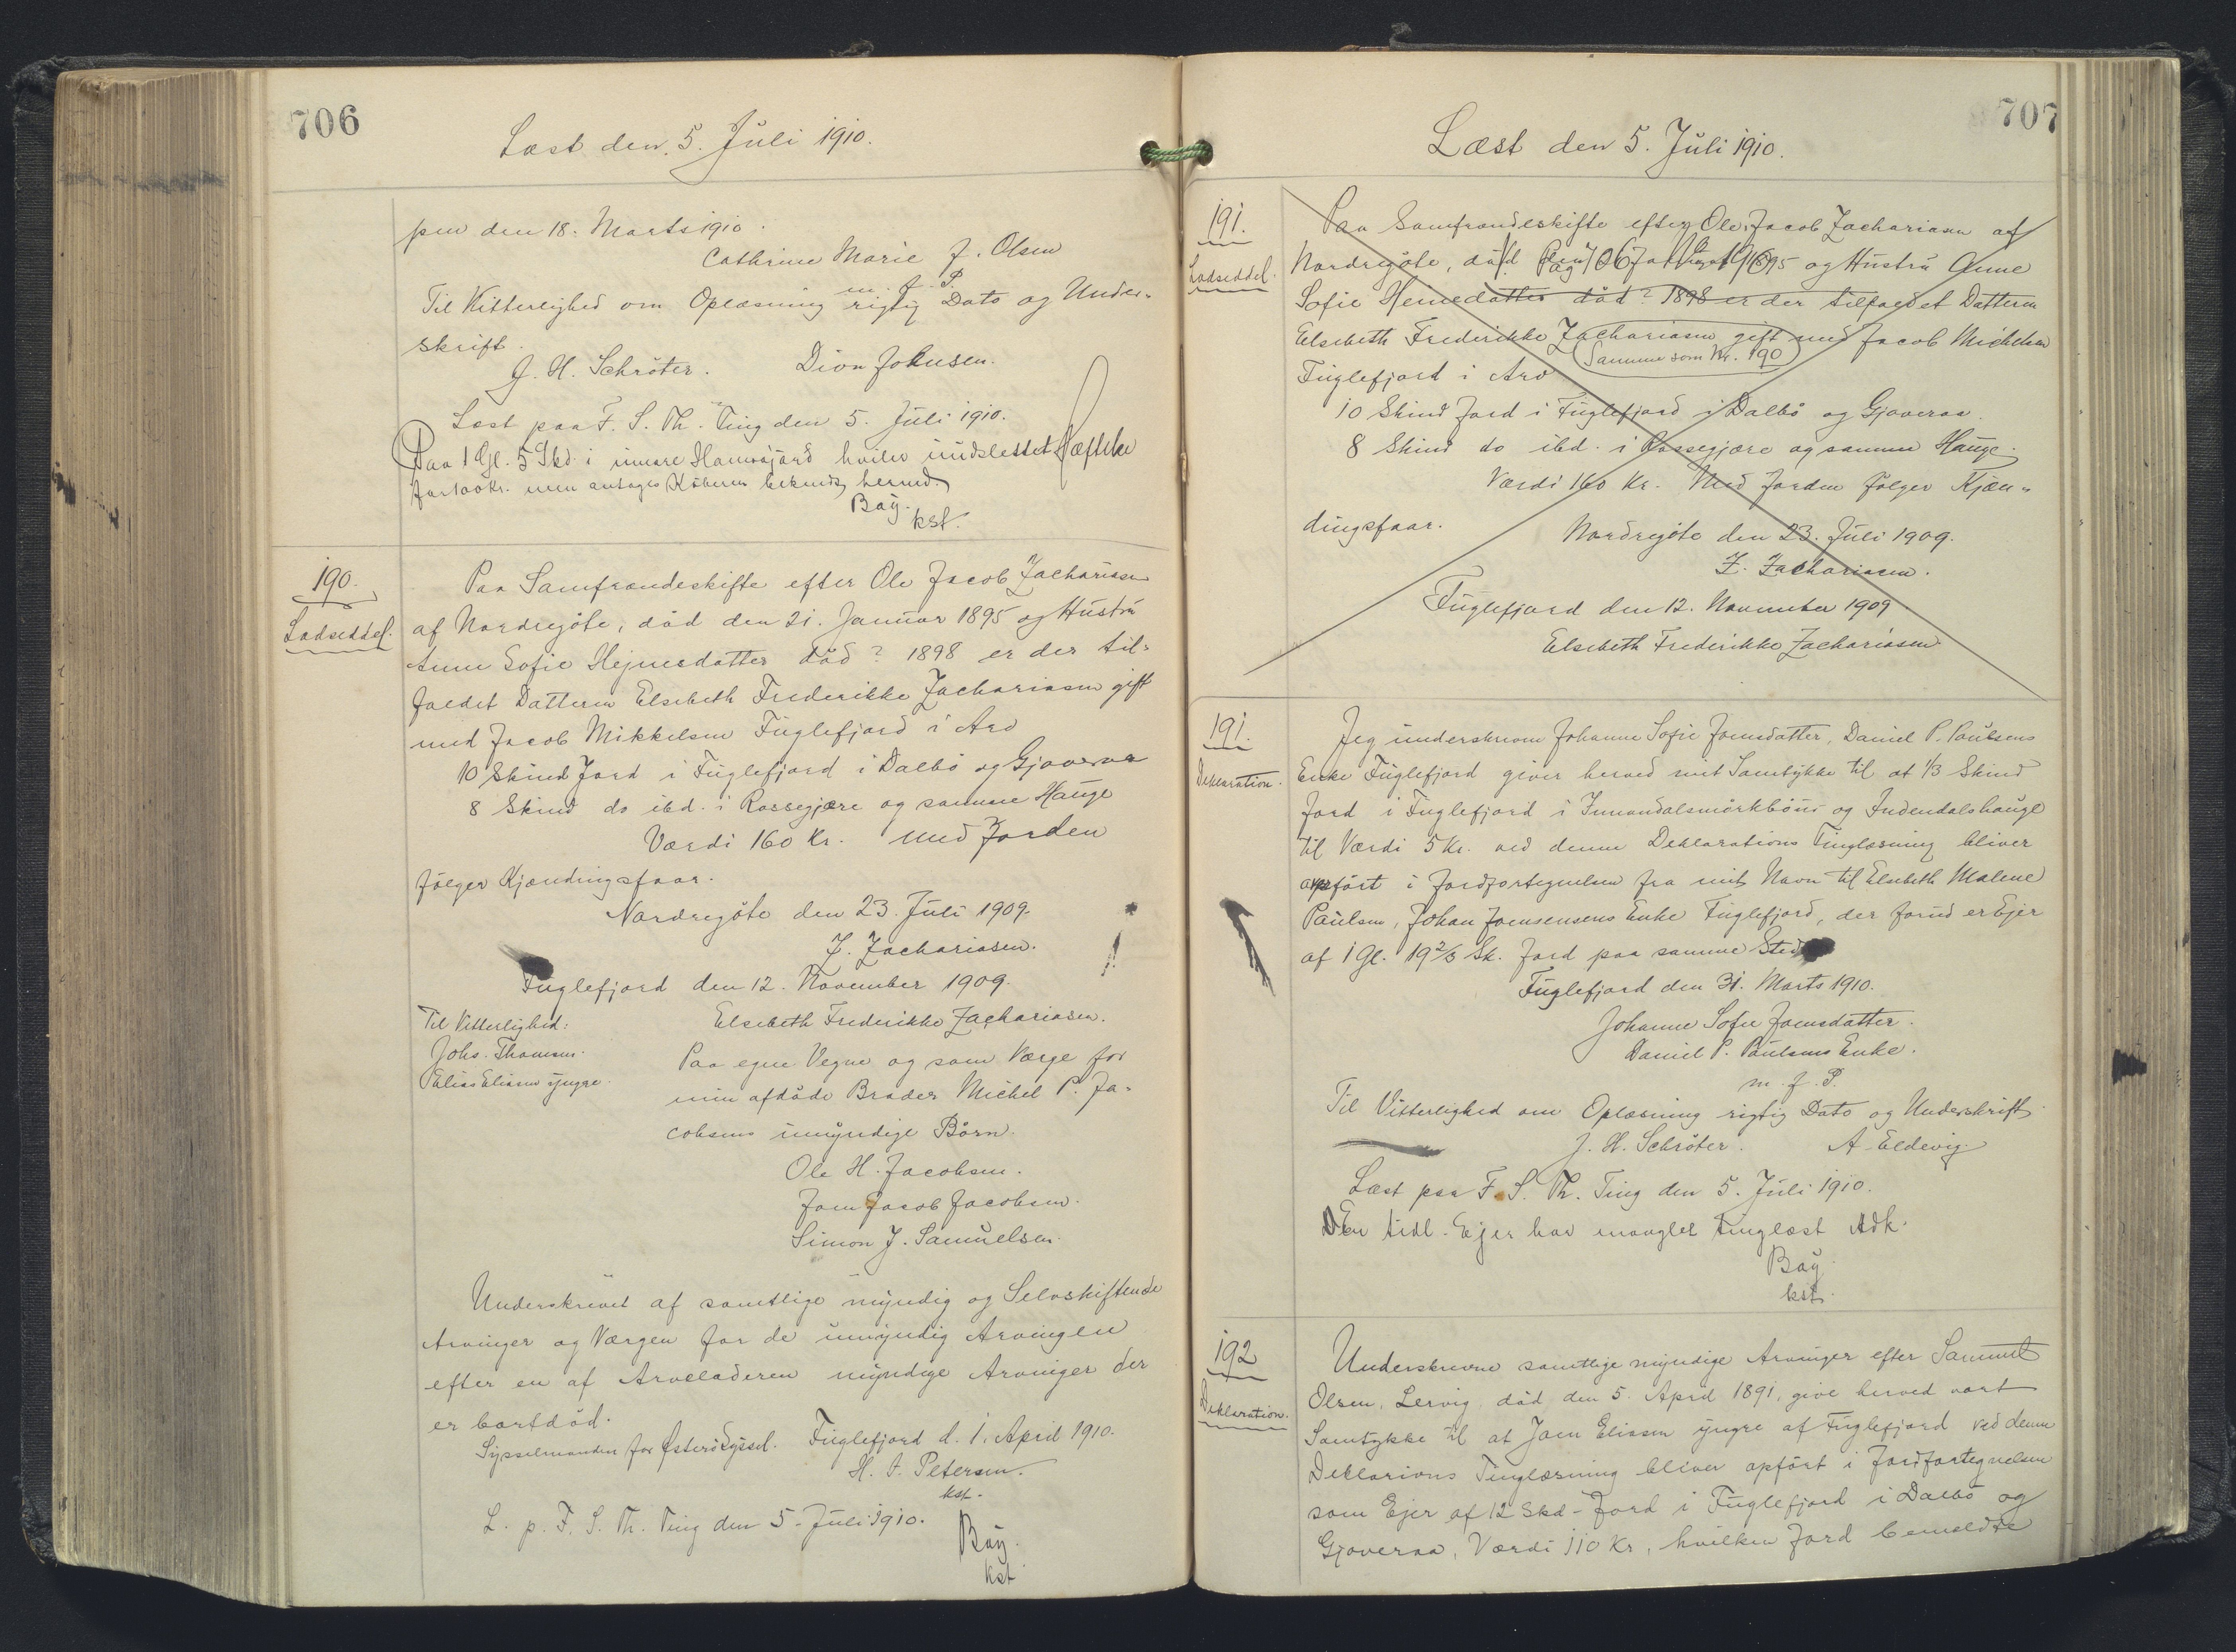 706
Læst den 5. Juli 1910.
pen den 18. Marts 1910.
Cathrine Marie J. Olsen
m. f. P.
Til Vitterlighed om Oplæsning rigtig Dato og Under-
skrift.
J. H. Schröter. Dion Johnsen.
Læst paa F. S. Th. Ting den 5. Juli 1910.
Paa 1 Gl. 5 Skd. i hviler Hæftelse
for 100 Kr. men antages Køberen bekendt hermed.
Bay.
kst.
190.
Lodseddel.
Paa Samfrændeskifte efter Ole Jacob Zachariasen
af Nordregöte, död den 21. Januar 1895 og Hustru
Anne Sofie Hejnesdatter död? 1898 er der til-
faldet Datteren Elsebeth Frederikke Zachariasen gift
med Jacob Mikkelsen Fuglefjord i Arv
10 Skind Jord i Fuglefjord i Dalbö og Gjoveraa
8 Skind do ibd. i Rossegjære og samme Hauge
Værdi 160 Kr. Med Jorden
fölger Kjændingsfaar.
Nordregöte den 23. Juli 1909.
Z. Zachariasen.
Fuglefjord den 12. November 1909.
Til Vitterlighed: Elsebeth Frederikke Zachariasen.
Johs. Thomsen. Paa egne Vegne og som Værge for
Elias Eliasen yngre. min afdöde Broder Michel P. Ja-
cobsens umyndige Börn.
Ole H. Jacobsen.
Joen Jacob Jacobsen.
Simon J. Samuelsen.
Underskrevet af samtlige myndig og Selvskiftende
Arvinger og Værgen for de umyndig Arvingen
efter en af Arveladeren myndige Arvinger der
er bortdöd.
Sysselmanden for Østerö Syssel. Fuglefjord d. 1. April 1910.
H. J. Petersen.
kst.
L. p. F. S. Th. Ting den 5. Juli 1910.
Bay.
kst
707
Læst den 5. Juli 1910.
191.
Lodseddel.
Paa Samfrændeskifte efter Ole Jacob Zachariasen af
Nordregöte, död 1895 og Hustru Anne
Pag 706
Sofie Heinedatter död? 1898 er der tilfaldet Datteren
Elsebeth Frederikke Zachariasen gift med Jacob Michelsen
(Samme som Nr. 190)
Fuglefjord i Arv
10 Skind Jord i Fuglefjord i Dalbö og Gjoveraa.
8 Skind do ibd. i Rossegjære og samme Hauge.
Værdi 160 Kr. Med Jorden fölger Kjæn-
dingsfaar.
Nordregöte den 23. Juli 1909.
Z. Zachariasen.
Fuglefjord den 12. November 1909
Elsebeth Frederikke Zachariasen
191.
Deklaration.
Jeg underskrevne Johanne Sofie Joensdatter, Daniel P. Paulsens
Enke Fuglefjord giver herved mit Samtykke til at 1/3 Skind
Jord i Fuglefjord i Innandalsmörkböur og Indendalshauge
til Værdi 5 Kr. ved denne Deklarations Tinglæsning bliver
opfört i Jordfortegnelsen fra mit Navn til Elsebeth Malene
Paulsen, Johan Joensensens Enke Fuglefjord, der forud er Ejer
af 1 Gl. 19 2/3 Sk. Jord paa samme Sted
Fuglefjord den 31. Marts 1910.
Johanne Sofie Joensdatter.
Daniel P. Paulsens Enke.
m. f. P.
Til Vitterlighed om Oplæsning rigtig Dato og Underskrift.
J. H. Schröter. A. Eldevig.
Læst paa F. S. Th. Ting den 5. Juli 1910.
Den tidl. Ejer har manglet tinglæst Adk.
Bay
kst.
192
Deklaration.
Underskrevne samtlige myndige Arvinger efter Samuel
Olsen, Lervig, död den 5. April 1891, give herved vort
Samtykke til at Joen Eliasen yngre af Fuglefjord ved denne
Deklarions Tinglæsning bliver opfört i Jordfortegnelsen
som Ejer af 12 Skd. Jord i Fuglefjord i Dalbö og
Gjoveraa, Værdi 110 Kr, hvilken Jord bemeldte